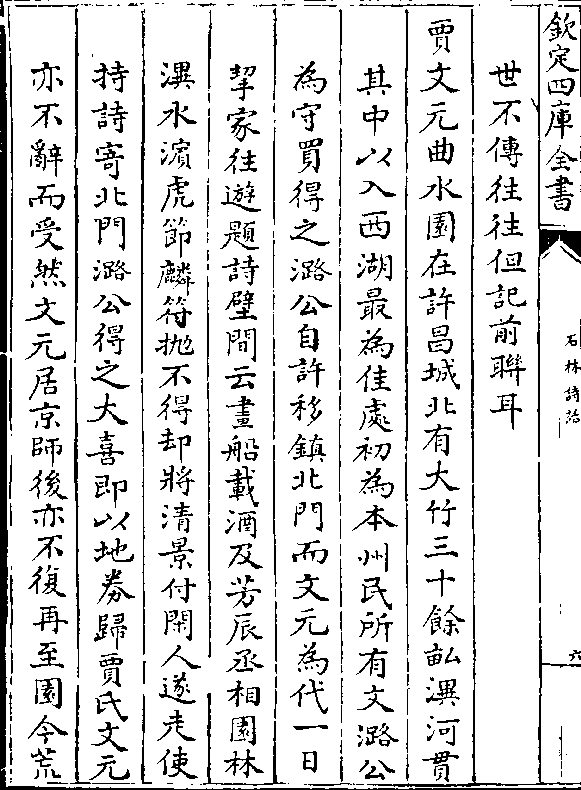 欽定四庫全書
石林詩話
六
世不傳徃徃但記前聯耳
賈文元曲水園在許昌城北有大竹三十餘畝潩河貫
其中以入西湖最為佳處初為本州民所有文潞公
為守買得之潞公自許移鎮北門而文元為代一日
挈家往遊題詩壁間云畫船載酒及芳辰丞相園林
潩水濱虎節麟符抛不得却將清景付閑人遂走使
持詩寄北門潞公得之大喜即以地劵歸賈氏文元
亦不辭而受然文元居京師後亦不復再至園今荒